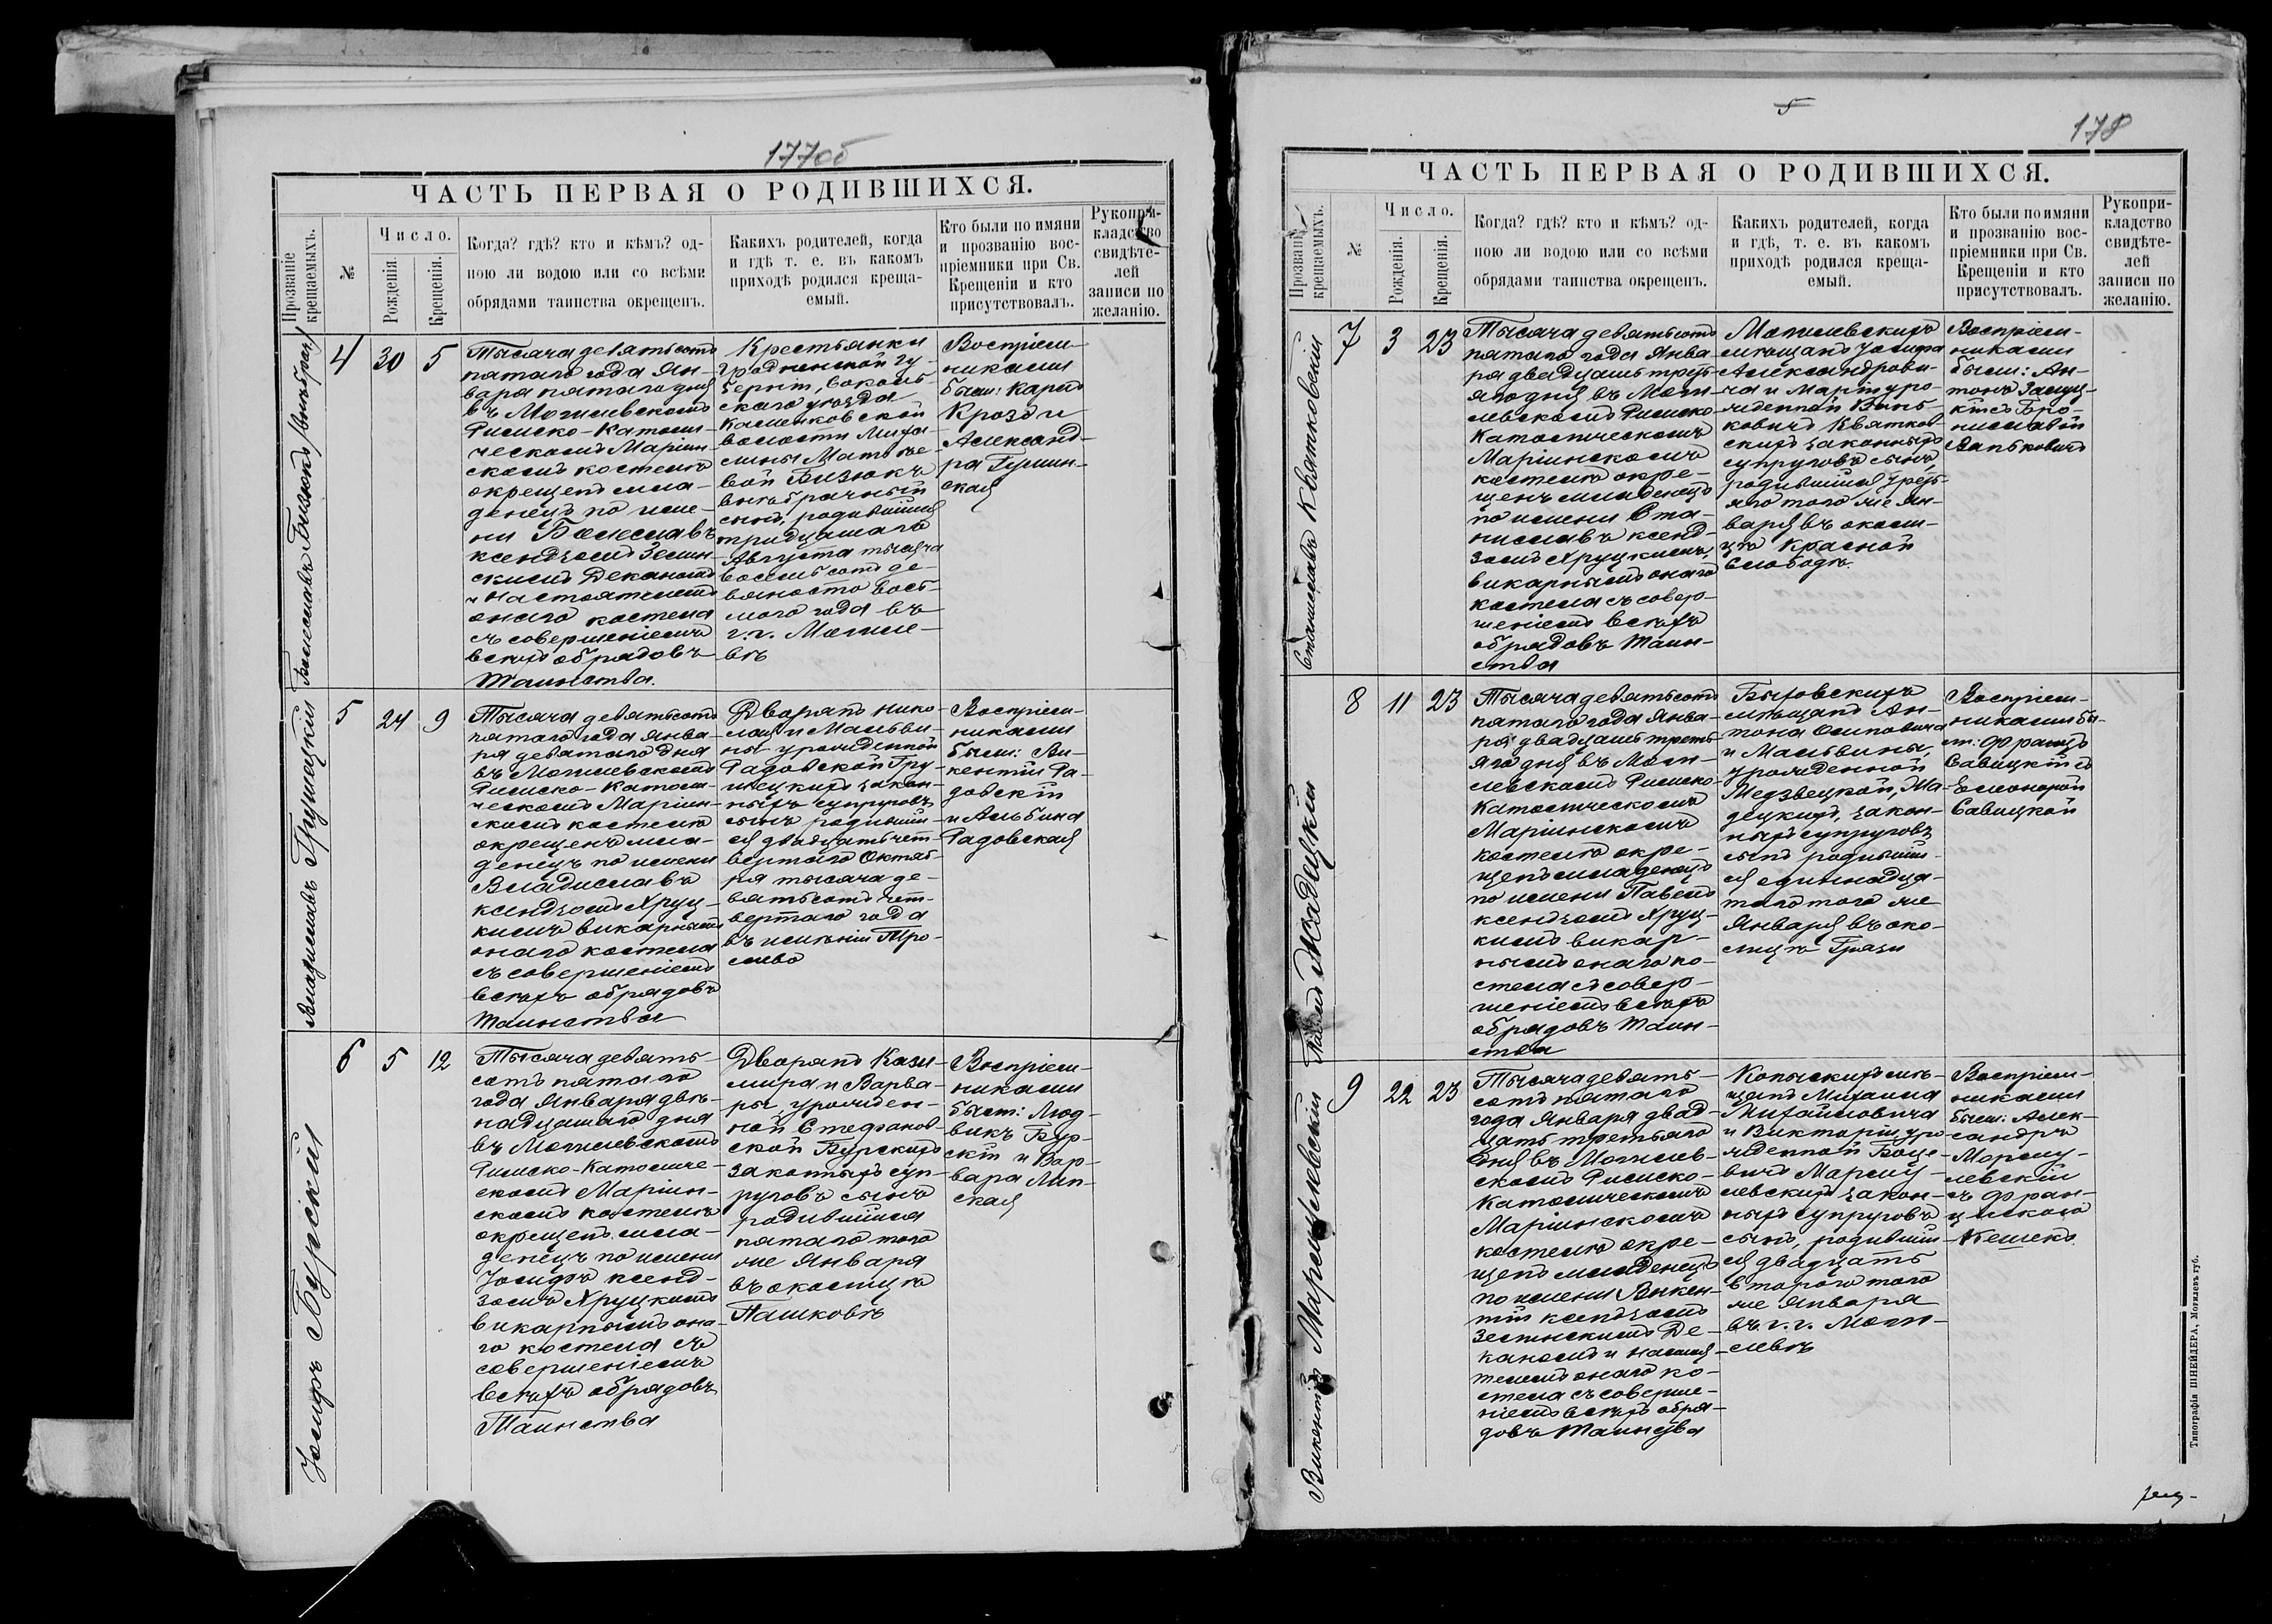 177об
ЧАСТЬ ПЕРВАЯ О РОДИВШИХСЯ.
Прозваніе крещаемыхъ.
№
Число.
Рожденія.
Крещенія.
Когда? гдѣ? кто и кѣмъ? од-
ною ли водою или со всѣми
обрядами таинства окрещенъ.
Какихъ родителей, когда
и гдѣ т. е. въ какомъ
приходѣ родился креща-
емый.
Кто были по имяни
и прозванію вос-
пріемники при Св.
Крещеніи и кто
присутствовалъ.
Рукопри-
кладство
свидѣте-
лей
записи по
желанію.
Болеславъ Бизюкъ /внѣбрач./
4
30
5
Тысяча девятьсотъ
пятаго года Ян-
варя пятаго дня
въ Могилевскомъ
Римско-Католи-
ческомъ Маріин-
скомъ костелѣ
окрещенъ мла-
денецъ по име-
ни Болеславъ
ксендзомъ
Деканомъ
и Настоятелемъ
онаго костела
съ совершеніемъ
всѣхъ обрядовъ
Таинства.
Крестьянки
Гродненской гу-
берніи, Сокол-
скаго уѣзда
Каменковской
волости Миха-
лины
Бизюкъ
внѣбрачный
сынъ, родившійся
тридцатаго
Августа тысяча
восемьсотъ де-
вяносто вось-
маго года въ
г.г. Могиле-
вѣ
Воспріем-
никами
были: Карлъ
и
Александ-
ра
ская
Владиславъ Грушецкій
5
24
9
Тысяча девятьсотъ
пятаго года Янва-
ря девятаго дня
въ Могилевскомъ
Римско-Католи-
ческомъ Маріин-
скомъ костелѣ
окрещенъ мла-
денецъ по имени
Владиславъ
ксендзомъ Хруц-
кимъ викарнымъ
онаго костела
съ совершеніемъ
всѣхъ обрядовъ
Таинства
Дворянъ Нико-
лая и Мальви-
ны урожденной
Радовской Гру-
шецкихъ закон-
ныхъ супруговъ
сынъ родивший-
ся двадцать чет-
вертаго Октяб-
ря тысяча де-
вятьсотъ чет-
вертаго года
въ имѣніи
Воспріем-
никами
были: Ви-
кентій Ра-
довскій
и Альбина
Радовская
Іосифъ Бурскій
6
5
12
Тысяча девять-
сотъ пятаго
года Января двѣ-
надцатаго дня
въ Могилевскомъ
Римско-Католиче-
скомъ Маріин-
скомъ костелѣ
окрещенъ мла-
денецъ по имени
Іосифъ ксенд-
зомъ Хруцкимъ
викарнымъ она-
го костела съ
совершеніемъ
всѣхъ обрядовъ
Таинства
Дворянъ Кази-
мира и Варва-
ры, урожден-
ной Стефанов-
ской Бурскихъ
законныхъ суп-
руговъ сынъ
родившійся
пятаго того
же Января
въ околицѣ
Пашковѣ
Воспріем-
никами
были: Люд-
викъ Бур-
скій и Вар-
вара Лип-
ская
5
178
ЧАСТЬ ПЕРВАЯ О РОДИВШИХСЯ.
Прозваніе крещаемыхъ.
№
Число.
Рожденія.
Крещенія.
Когда? гдѣ? кто и кѣмъ? од-
ною ли водою или со всѣми
обрядами таинства окрещенъ.
Какихъ родителей, когда
и гдѣ, т. е. въ какомъ
приходѣ родился креща-
емый.
Кто были по имяни
и прозванію вос-
пріемники при Св.
Крещеніи и кто
присутствовалъ.
Рукопри-
кладство
свидѣте-
лей
записи по
желанію.
Станиславъ Квятковскій
7
3
23
Тысяча девятьсотъ
пятаго года Янва-
ря двадцать треть-
яго дня въ Моги-
левскомъ Римско-
Католическомъ
Маріинскомъ
костелѣ окре-
щенъ младенецъ
по имени Ста-
ниславъ ксенд-
зомъ Хруцкимъ,
викарнымъ онаго
костела съ совер-
шеніемъ всѣхъ
обрядовъ Таин-
ства
Могилевскихъ
мѣщанъ Іосифа
Александрови-
ча и Маріи уро-
жденной Вань-
ковичъ Квятков-
скихъ законныхъ
супруговъ сынъ,
родившійся треть-
яго того же Ян-
варя въ околи-
цѣ Красной
Слободѣ.
Воспріем-
никами
были: Ан-
тонъ
съ Бро-
ниславой
Ванковичъ
Павелъ Жабецкій
8
11
23
Тысяча девятьсотъ
пятаго года Янва-
ря двадцать треть-
яго дня въ Моги-
левскомъ Римско-
Католическомъ
Маріинскомъ
костелѣ окре-
щенъ младенецъ
по имени Павелъ
ксендзомъ Хруц-
кимъ викар-
нымъ онаго ко-
стела съ совер-
шеніемъ всѣхъ
обрядовъ Таин-
ства
Быховскихъ
мѣщанъ Ан-
тона Осиповича
и Мальвины,
урожденной
закон-
ныхъ супруговъ
сынъ родивший-
ся одиннадца-
таго того же
Января въ око-
лицѣ Грази
Воспріем-
никами бы-
ли: Францъ
Савицкій съ
Элеонорой
Савицкой
Викентій Марцулевскій
9
22
23
Тысяча девять-
сотъ пятаго
года Января двад-
цать третьяго
дня въ Могилев-
скомъ Римско-
Католическомъ
Маріинскомъ
костелѣ окре-
щенъ младенецъ
по имени Викен-
тій ксендзомъ
Де-
каномъ и Настоя-
телемъ онаго ко-
стела съ соверше-
ніемъ всѣхъ обря-
довъ Таинства
Копыскихъ мѣ-
щанъ Михаила
Михайловича
и Викторіи уро-
жденной
Марцу-
левскихъ закон-
ныхъ супруговъ
сынъ, родивший-
ся двадцать
втораго того
же Января
въ г.г. Моги-
левѣ
Воспріем-
никами
были: Алек-
сандръ
Марцу-
левскій
съ Фран-
цишкою
Типографія ШНЕЙДЕРА, Могилевъ губ.